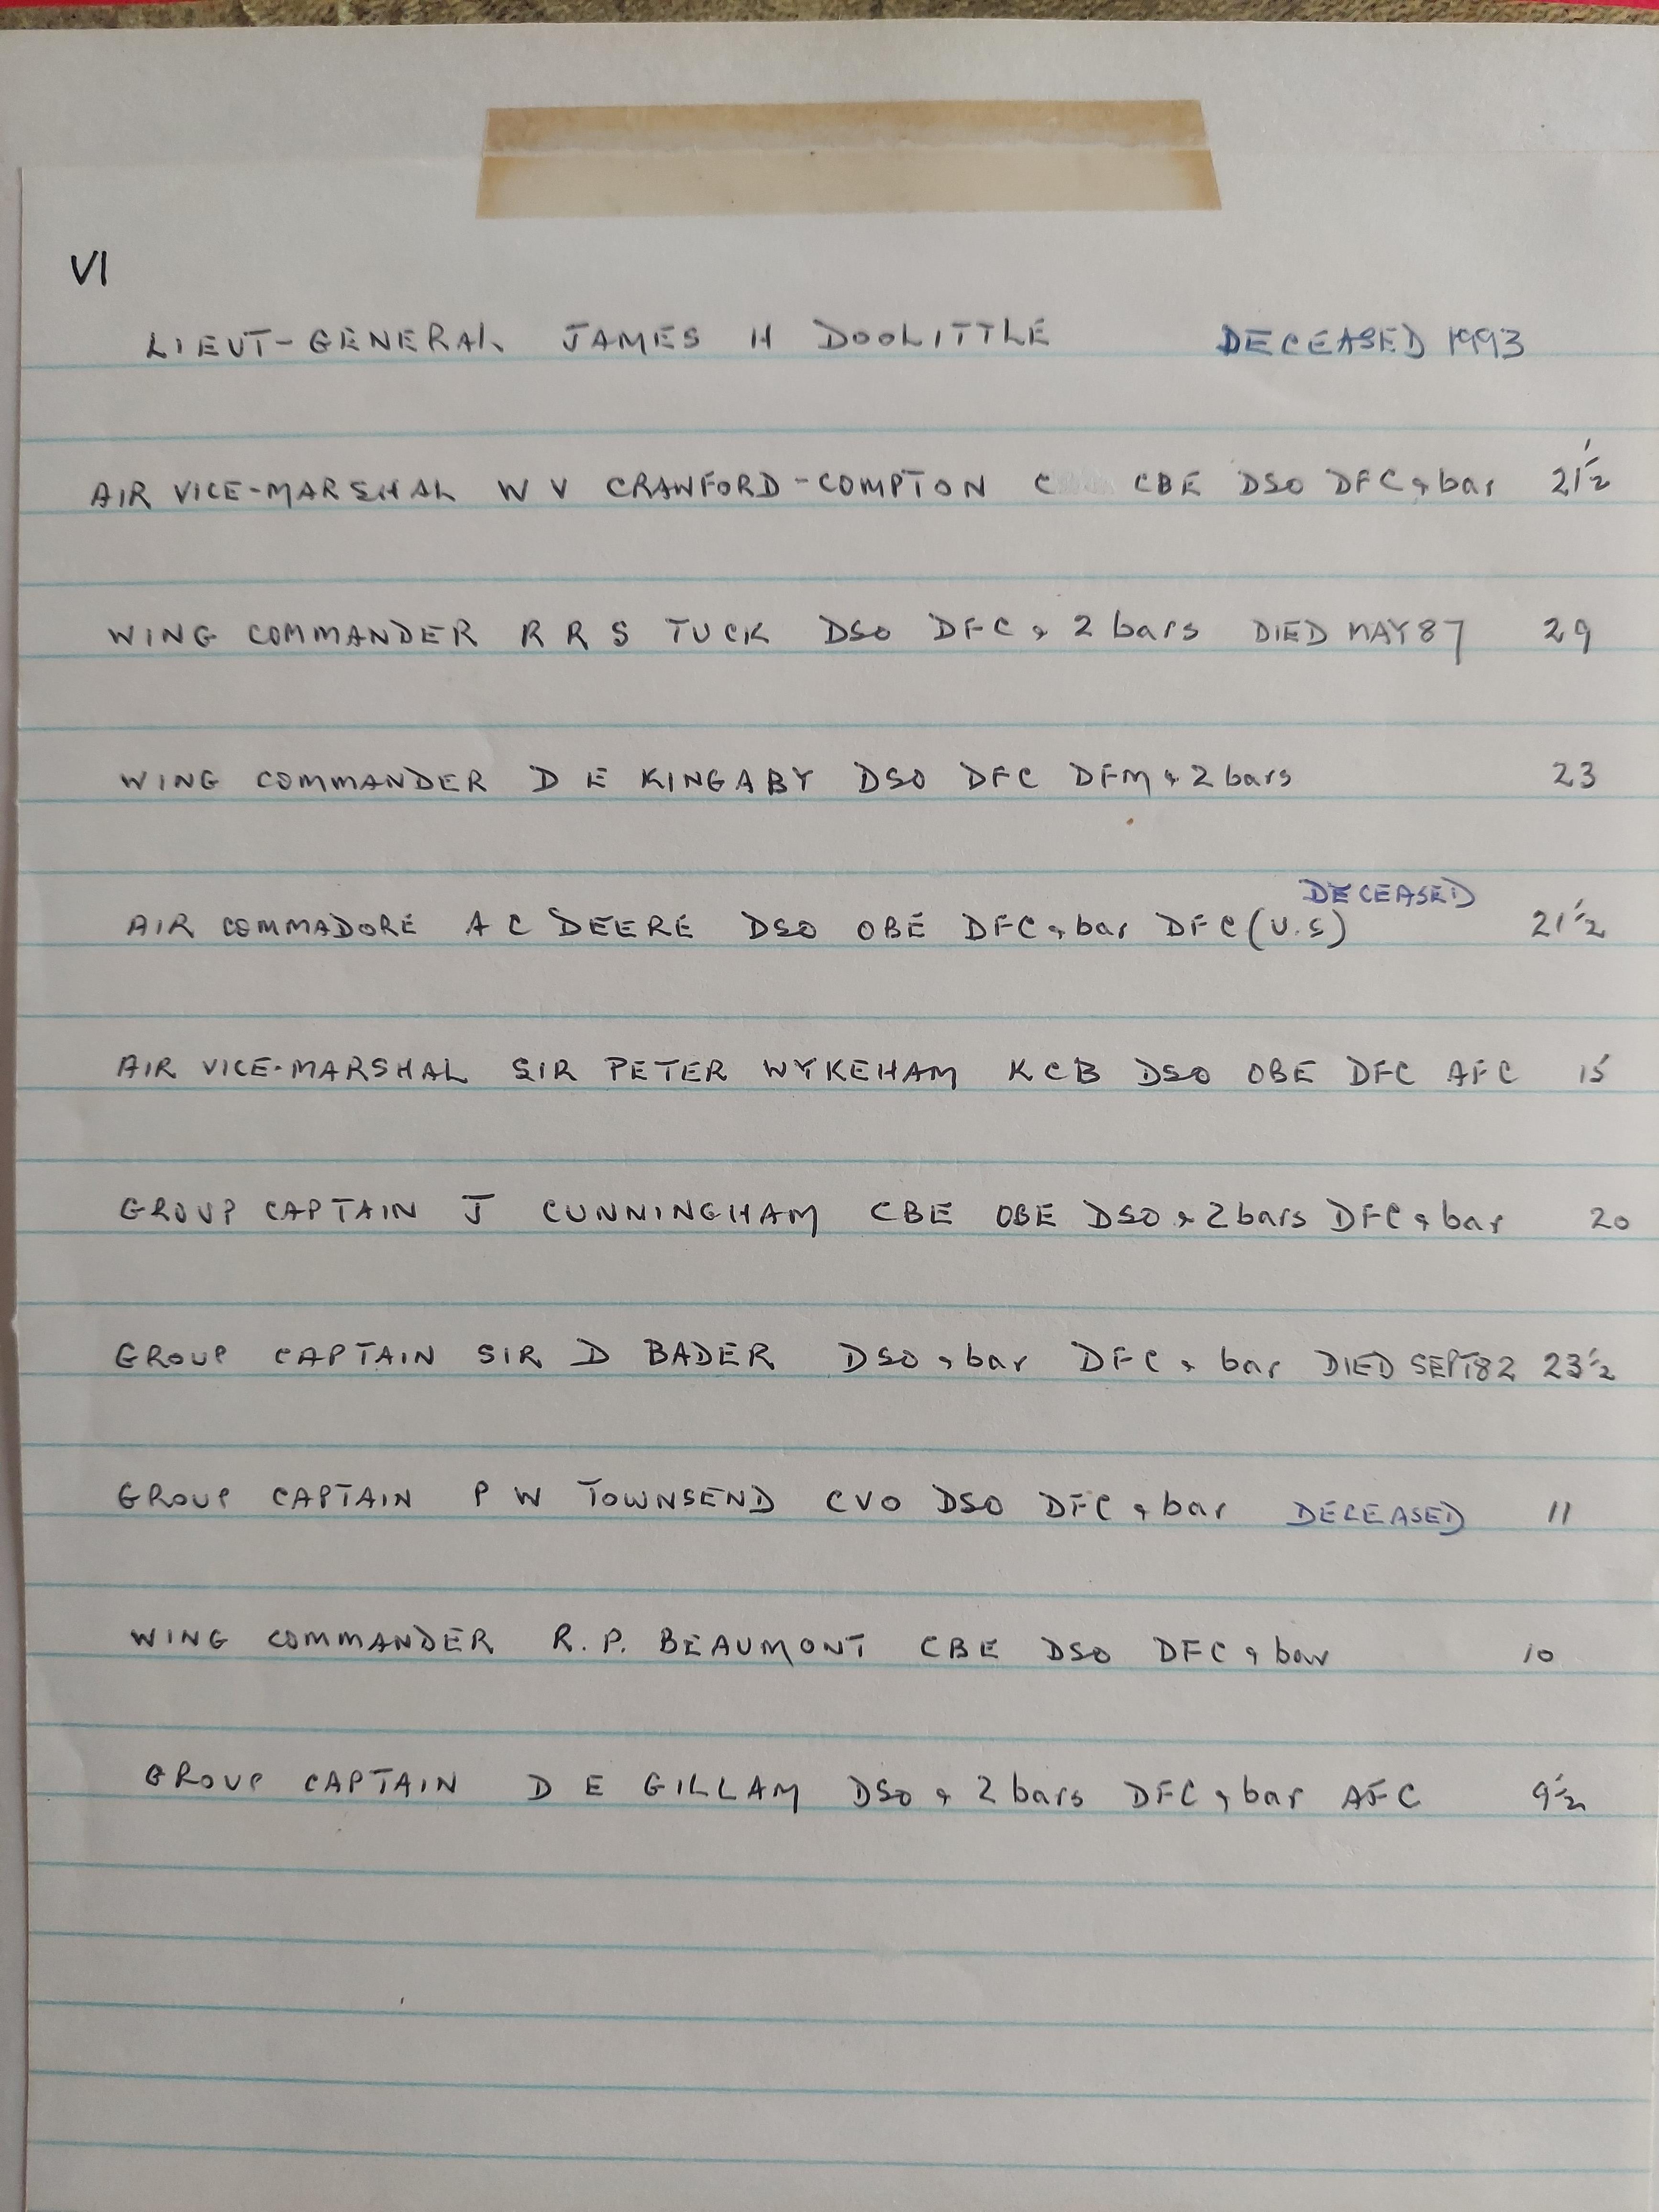 VI
LIEUT-GENERAL JAMES H DOOLITTLE DECEASED 1993
AIR VICE-MARSHAL W V CRAWFORD-COMPTON C CBE DSO DFC & bar 21½
WING COMMANDER R R S TUCK DSO DFC & 2 bars DIED MAY 87 29
WING COMMANDER D E KINGABY DSO DFC DFM & 2 bars 23
DECEASED
AIR COMMADORE A C DEERE DSO OBE DFC & bar DFC (U.S) 21½
AIR VICE-MARSHAL SIR PETER WYKEHAM KCB DSO OBE DFC AFC 15
GROUP CAPTAIN J CUNNINGHAM CBE OBE DSO & 2 bars DFC & bar 20
GROUP CAPTAIN SIR D BADER DSO & bar DFC & bar DIED SEPT 82 23½
GROUP CAPTAIN P W TOWNSEND CVO DSO DFC & bar DECEASED 11
WING COMMANDER R.P. BEAUMONT CBE DSO DFC & bar 10
GROUP CAPTAIN D E GILLAM DSO & 2 bars DFC & bar AFC 9½